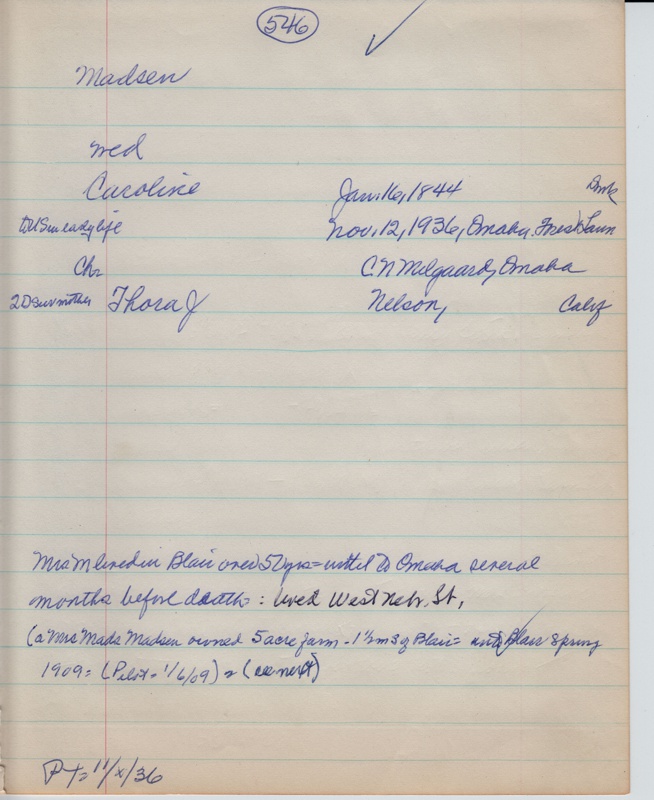 546
Madsen
wed
Caroline Jan. 16, 1844 Dmk
to US in early life Nov. 12, 1936, Omaha. Forest Lawn
Ch: C N Melgaard, Omaha
2 D surv mother Thora J Nelson, Calif
Mrs M lived in Blair over 50 yrs = until to Omaha several
months before death : lived West Nebr. St,
(a Mrs Mads Madsen owned 5 acre farm - 1½ m S of Blair = Blair Spring
1909 = (Pilot - 1/6/09) = (see next)
PT = 11/x/36